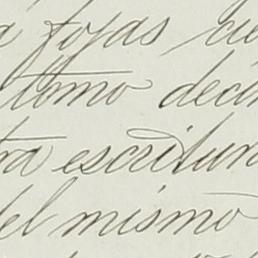 a fojas cu
ltimo deci
tra escritura
del mismo